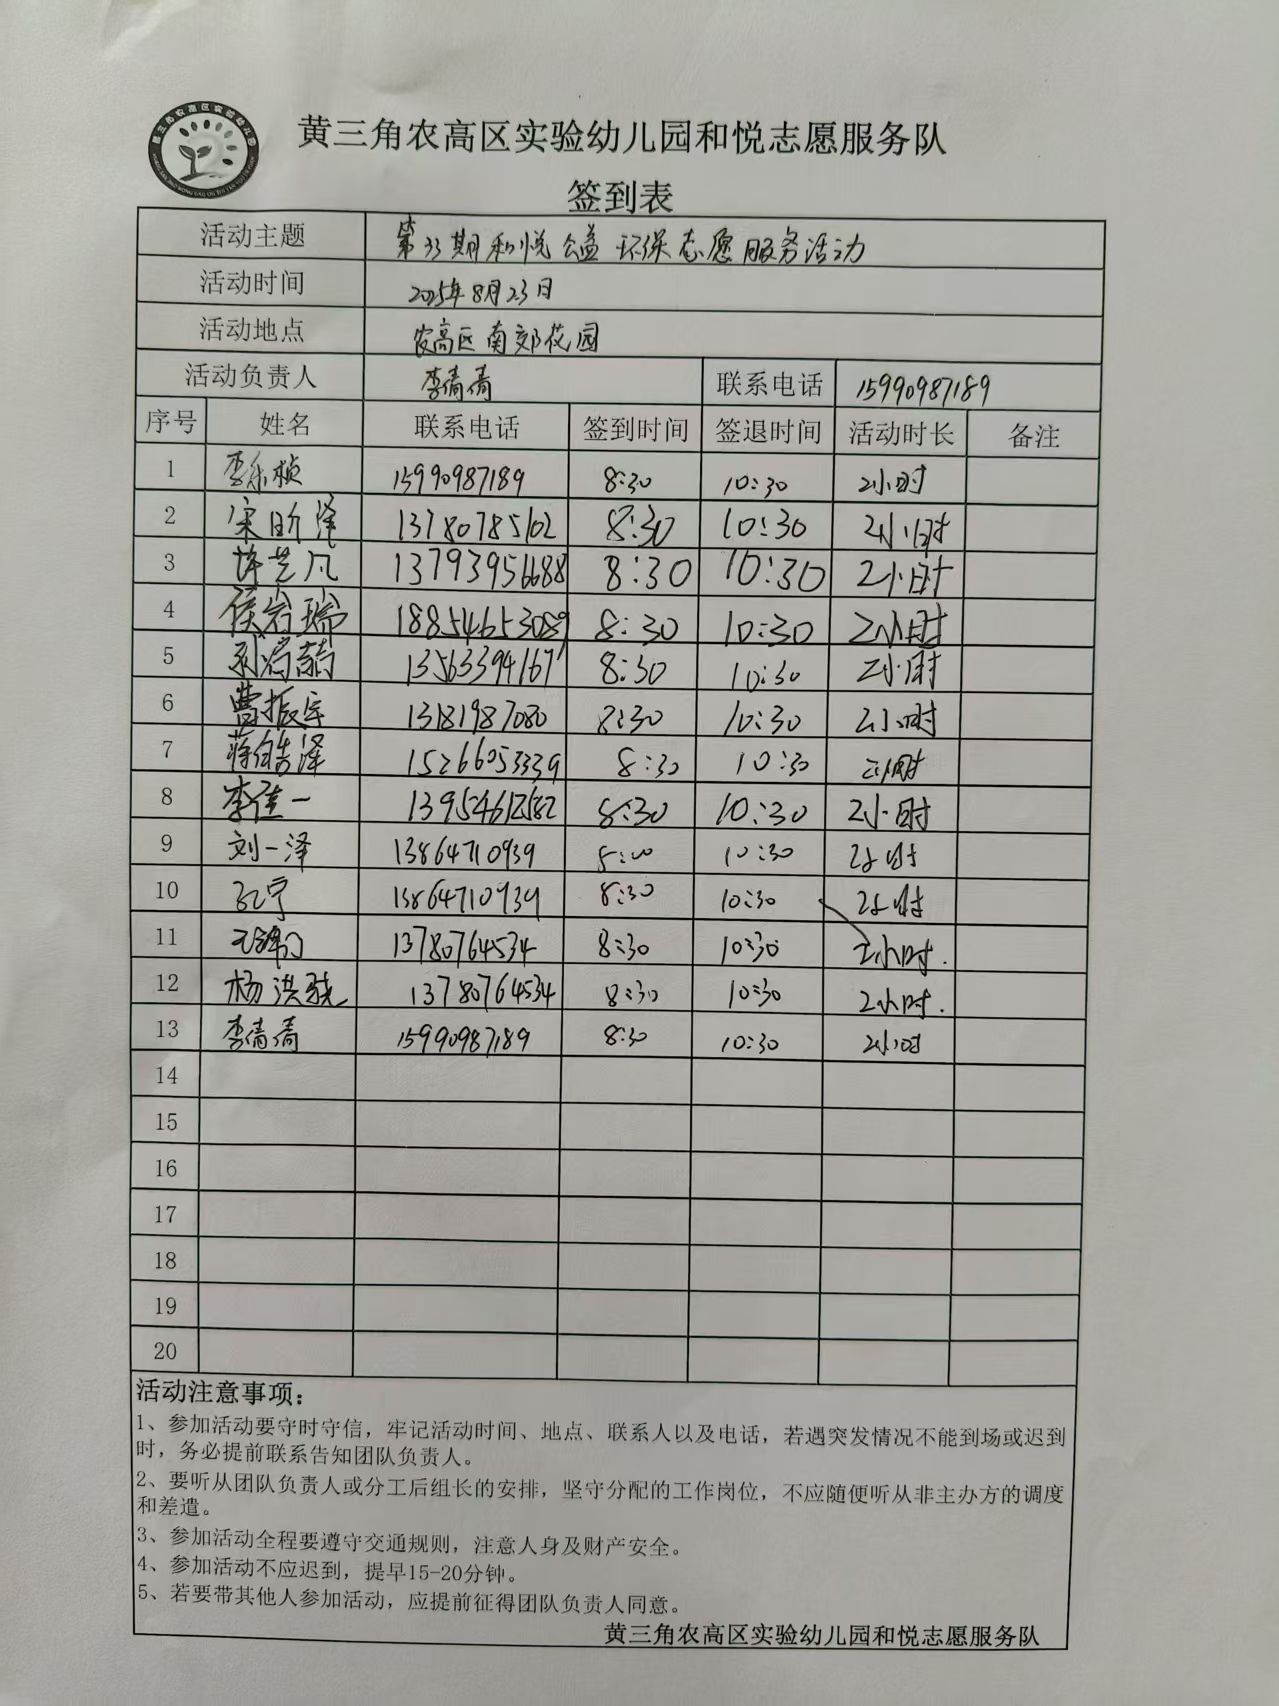 黄三角农高区实验幼儿园和悦志愿服务队
签到表
活动主题 第33期和悦公益环保志愿服务活动
活动时间 2025年8月23日
活动地点 农高区南郊花园
活动负责人 李倩倩 联系电话 15990987189
序号 姓名 联系电话 签到时间 签退时间 活动时长 备注
1 李乐桢 15990987189 8:30 10:30 2小时
2 宋昕泽 13780785102 8:30 10:30 2小时
3 许艺凡 13793956688 8:30 10:30 2小时
4 侯岩瑞 18854653089 8:30 10:30 2小时
5 13563394167 8:30 10:30 2小时
6 曹振宇 13181987080 8:30 10:30 2小时
7 蒋皓泽 15266053339 8:30 10:30 2小时
8 李佳一 13954612582 8:30 10:30 2小时
9 刘一泽 13864710939 10:30 2小时
10 孔宁 13864710939 8:30 10:30 2小时
11 13780764534 8:30 10:30 2小时.
12 杨洪骁 13780764534 8:30 10:30 2小时.
13 李倩倩 15990987189 8:30 10:30 2小时
14
15
16
17
18
19
20
活动注意事项：
1、参加活动要守时守信，牢记活动时间、地点、联系人以及电话，若遇突发情况不能到场或迟到
时，务必提前联系告知团队负责人。
2、要听从团队负责人或分工后组长的安排，坚守分配的工作岗位，不应随便听从非主办方的调度
和差遣。
3、参加活动全程要遵守交通规则，注意人身及财产安全。
4、参加活动不应迟到，提早15-20分钟。
5、若要带其他人参加活动，应提前征得团队负责人同意。
黄三角农高区实验幼儿园和悦志愿服务队